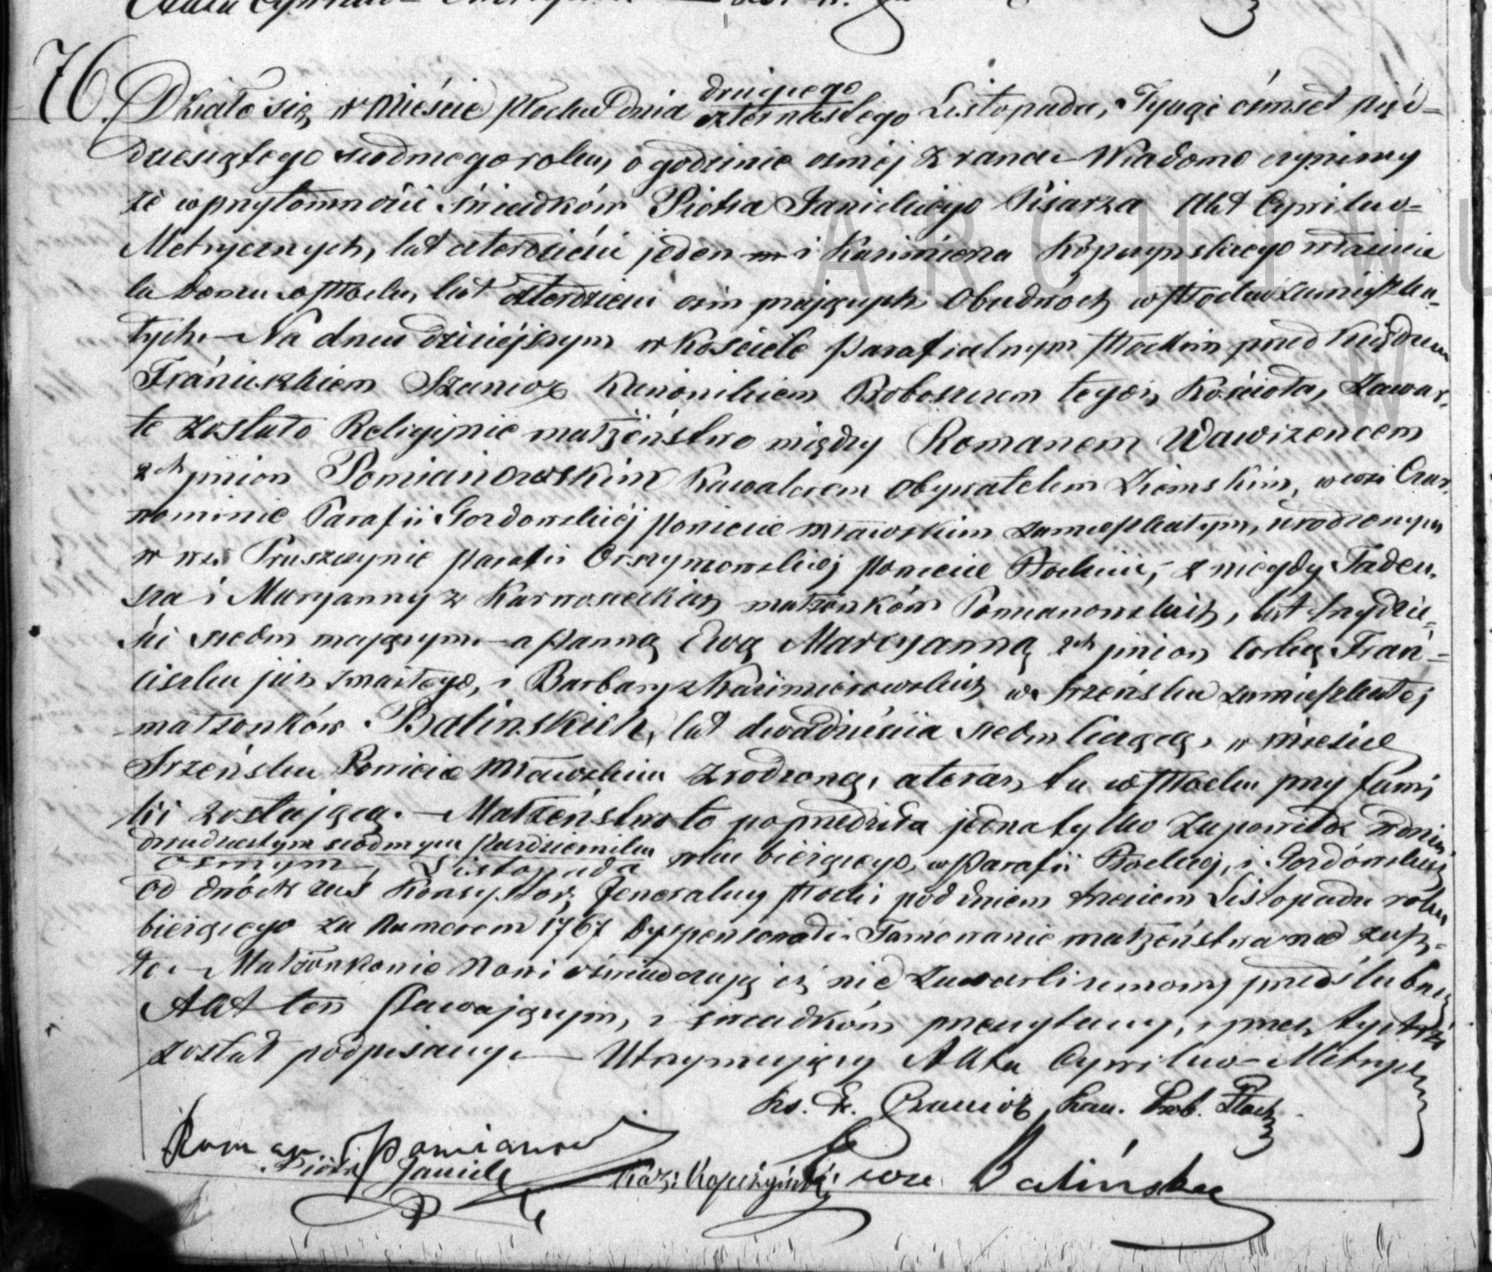 76.
Działo się w Mieście Płocku dnia drugiego czternastego Listopada, Tysiąc ośmset pięć=
dziesiątego siódmego roku, o godzinie ósmej z rana. Wiadomo czynimy
że w przytomności świadków Piotra Janickiego Pisarza Akt Cywilno=
Metrycznych, lat czterdzieści jeden i Kazimierza Kopczyńskiego właścicie
la domu w Płocku, lat czterdzieści osm mających Obudwoch w Płocku zamieszka=
łych. — Na dniu dzisiejszym w Kościele parafialnym Płockim przed Księdzem
Franciszkiem Kanonikiem Proboszczem tegoż Kościoła, Zawar=
te zostało Religijnie małżeństwo między Romanem Wawrzencem
2ch imion Pomianowskim Kawalerem Obywatelem Ziemskim, w wsi Czar=
nominie Parafii Gozdowskiej powiecie Mławskim zamieszkałym, urodzonym
w wsi Pruszczynie parafii Orszymowskiej powiecie Płockim, z niegdy Tadeu=
sza i Maryanny z Karnoseckich małżonków Pomianowskich, lat trzydzie=
ści siedm mającym — a Panną Ewą Marcyanną 2ch imion córką Fran=
ciszka już zmarłego, i Barbary z Kazimierowskich w Srzeńsku zamieszkałej
małżonków Balinskich, lat dwadzieścia siedm liczącą, w mieście
Srzeńsku Powiecie Mławskim zrodzoną, a teraz tu w Płocku przy fami
lii zostającą. — Małżeństwo to poprzedziła jedna tylko zapowiedź w dniu
dwudziestym siódmym Października
osmym Listopada roku bieżącego, w Parafii Płockiej, i Gozdowskiej
od dwóch zaś Konsystorz Jeneralny Płocki pod dniem trzecim Listopada roku
bieżącego za Numerem 1767 Dyspensował. Tamowanie małżeństwa nie zasz=
ło. — Małżonkowie Nowi oświadczają iż nie zawarli umowy przedślubnej
Akt ten stawającym, i świadkom przeczytany, i przez tychże
został podpisany. — Utrzymujący Akta Cywilno-Metryczne
Ks. F. Kan. Prob. Płock
Roman Pomianow
Piotr Janick
Kaz: Kopczyński
Ewa Balińska
ARCHIWU
W